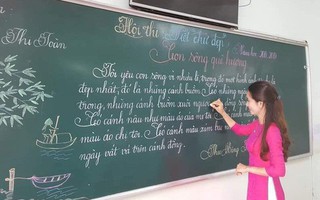 Hội thi "Viết chữ đẹp"
Năm học
Thi Toàn
Con sông quê hương
Tôi yêu con sông vì nhiều lẽ, trong đó một hình ảnh
đẹp nhất, đó là những cánh buồm. Có những ngày
trong, những cánh buồm xuôi ngược dòng sông
Có cánh nâu như màu áo của mẹ tôi. Có cánh
màu áo chị tôi. Có cánh xám
ngày vất vả trên cánh đồng.
Thu Hồng